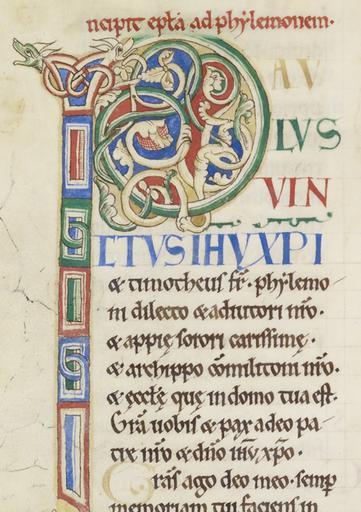 ncipit epła ad phylemonem.
PAV
LVS
VIN
CTVS IHV XPI
& timotheus fr̄. phylemo
ni dilecto & adiutori nr̄o.
& appię sorori carissimę.
& archippo cōmilitoni nr̄o.
& ecclę quę in domo tua est.
Grā uobis & pax a deo pa-
tre nr̄o & dn̄o ihu xp̄o.
Grās ago deo meo. semp̄
memoriam tui faciens in